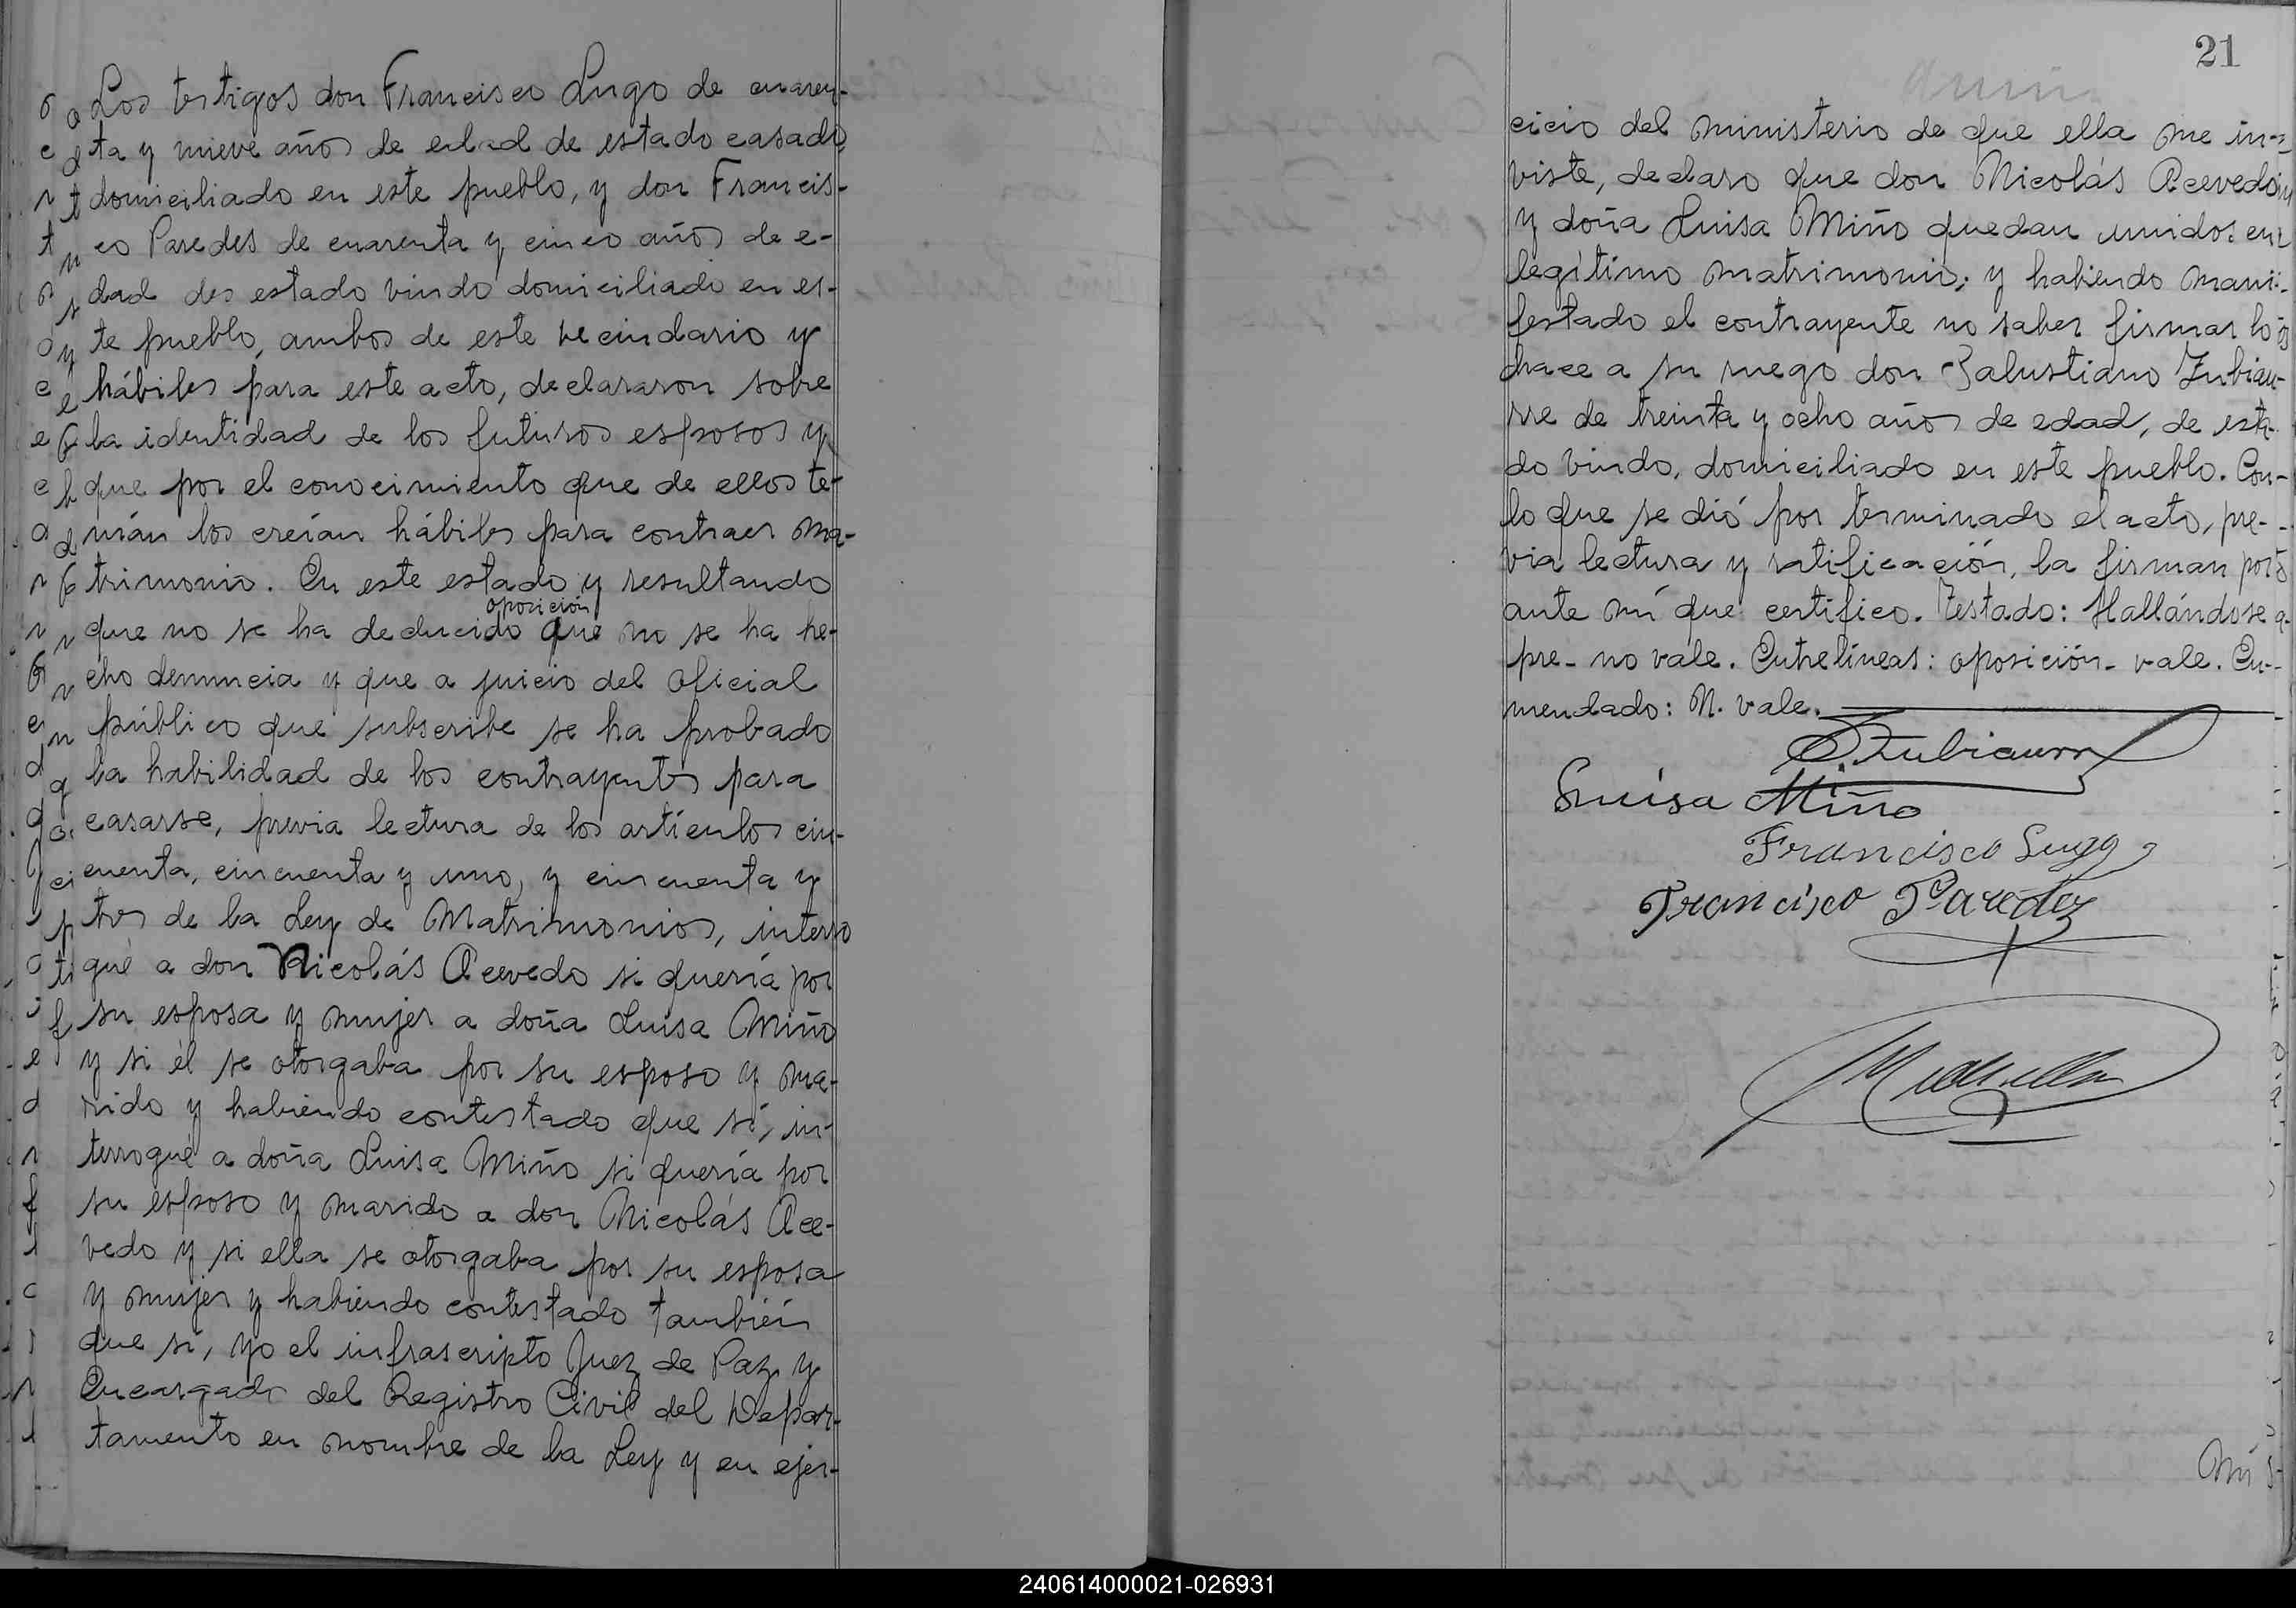 Los testigos don Francisco Lugo de cuaren-
ta y nueve años de edad de estado casado
domiciliado en este pueblo, y don Francis-
co Paredes de cuarenta y cinco años de e-
dad des estado viudo domiciliado en es-
te pueblo, ambos de este vecindario y
hábiles para este acto, declararon sobre
la identidad de los futuros esposos y
que por el conocimiento que de ellos te-
nían los creían hábiles para contraer ma-
trimonio. En este estado y resultando
oposición
que no se ha deducido que no se ha he-
cho denuncia y que a juicio del oficial
público que subscribe se ha probado
la habilidad de los contrayentes para
casarse, previa lectura de los artículos cin-
cuenta, cincuenta y uno, y cincuenta y
tres de la Ley de Matrimonios, interro
gué a don Nicolás Acevedo si quería por
su esposa y mujer a doña Luisa Miño
y si él se otorgaba por su esposo y ma-
rido y habiendo contestado que sí, in-
terrogué a doña Luisa Miño si quería por
su esposo y marido a don Nicolás Ace-
vedo y si ella se otorgaba por su esposa
y mujer y habiendo contestado también
que sí, yo el infrascripto Juez de Paz y
Encargado del Registro Civil del Depar-
tamento en nombre de la Ley y en ejer-
21
cicio del ministerio de que ella me in-
viste, declaro que don Nicolás Acevedo
y doña Luisa Miño quedan unidos en
legítimo matrimonio; y habiendo mani-
festado el contrayente no saber firmar lo
hace a su ruego don Salustiano Zubiau-
rre de treinta y ocho años de edad, de esta-
do viudo, domiciliado en este pueblo. Con-
lo que se dió por terminado el acto, pre-
via lectura y ratificación, la firman por
ante mí que certifico. Testado: Hallándose
pre- no vale. Entrelíneas: oposición- vale. En-
mendado: N. vale.
S. Zubiaurre
Luisa Miño
Francisco Lugo
Francisco Paredez
240614000021-026931